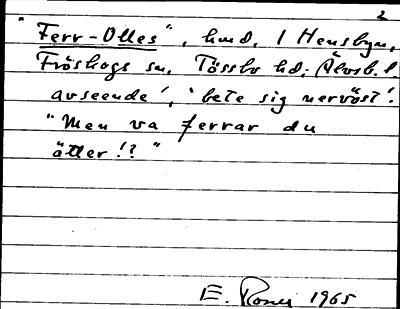 2
"Ferr-Olles", hmd. 1 Hensbyn,
Fröskogs sn. Tössbo hd; Älvsb. l.
avseende', 'bete sig nervöst'.
"Men va ferrar du
ätter!? "
E. 1965